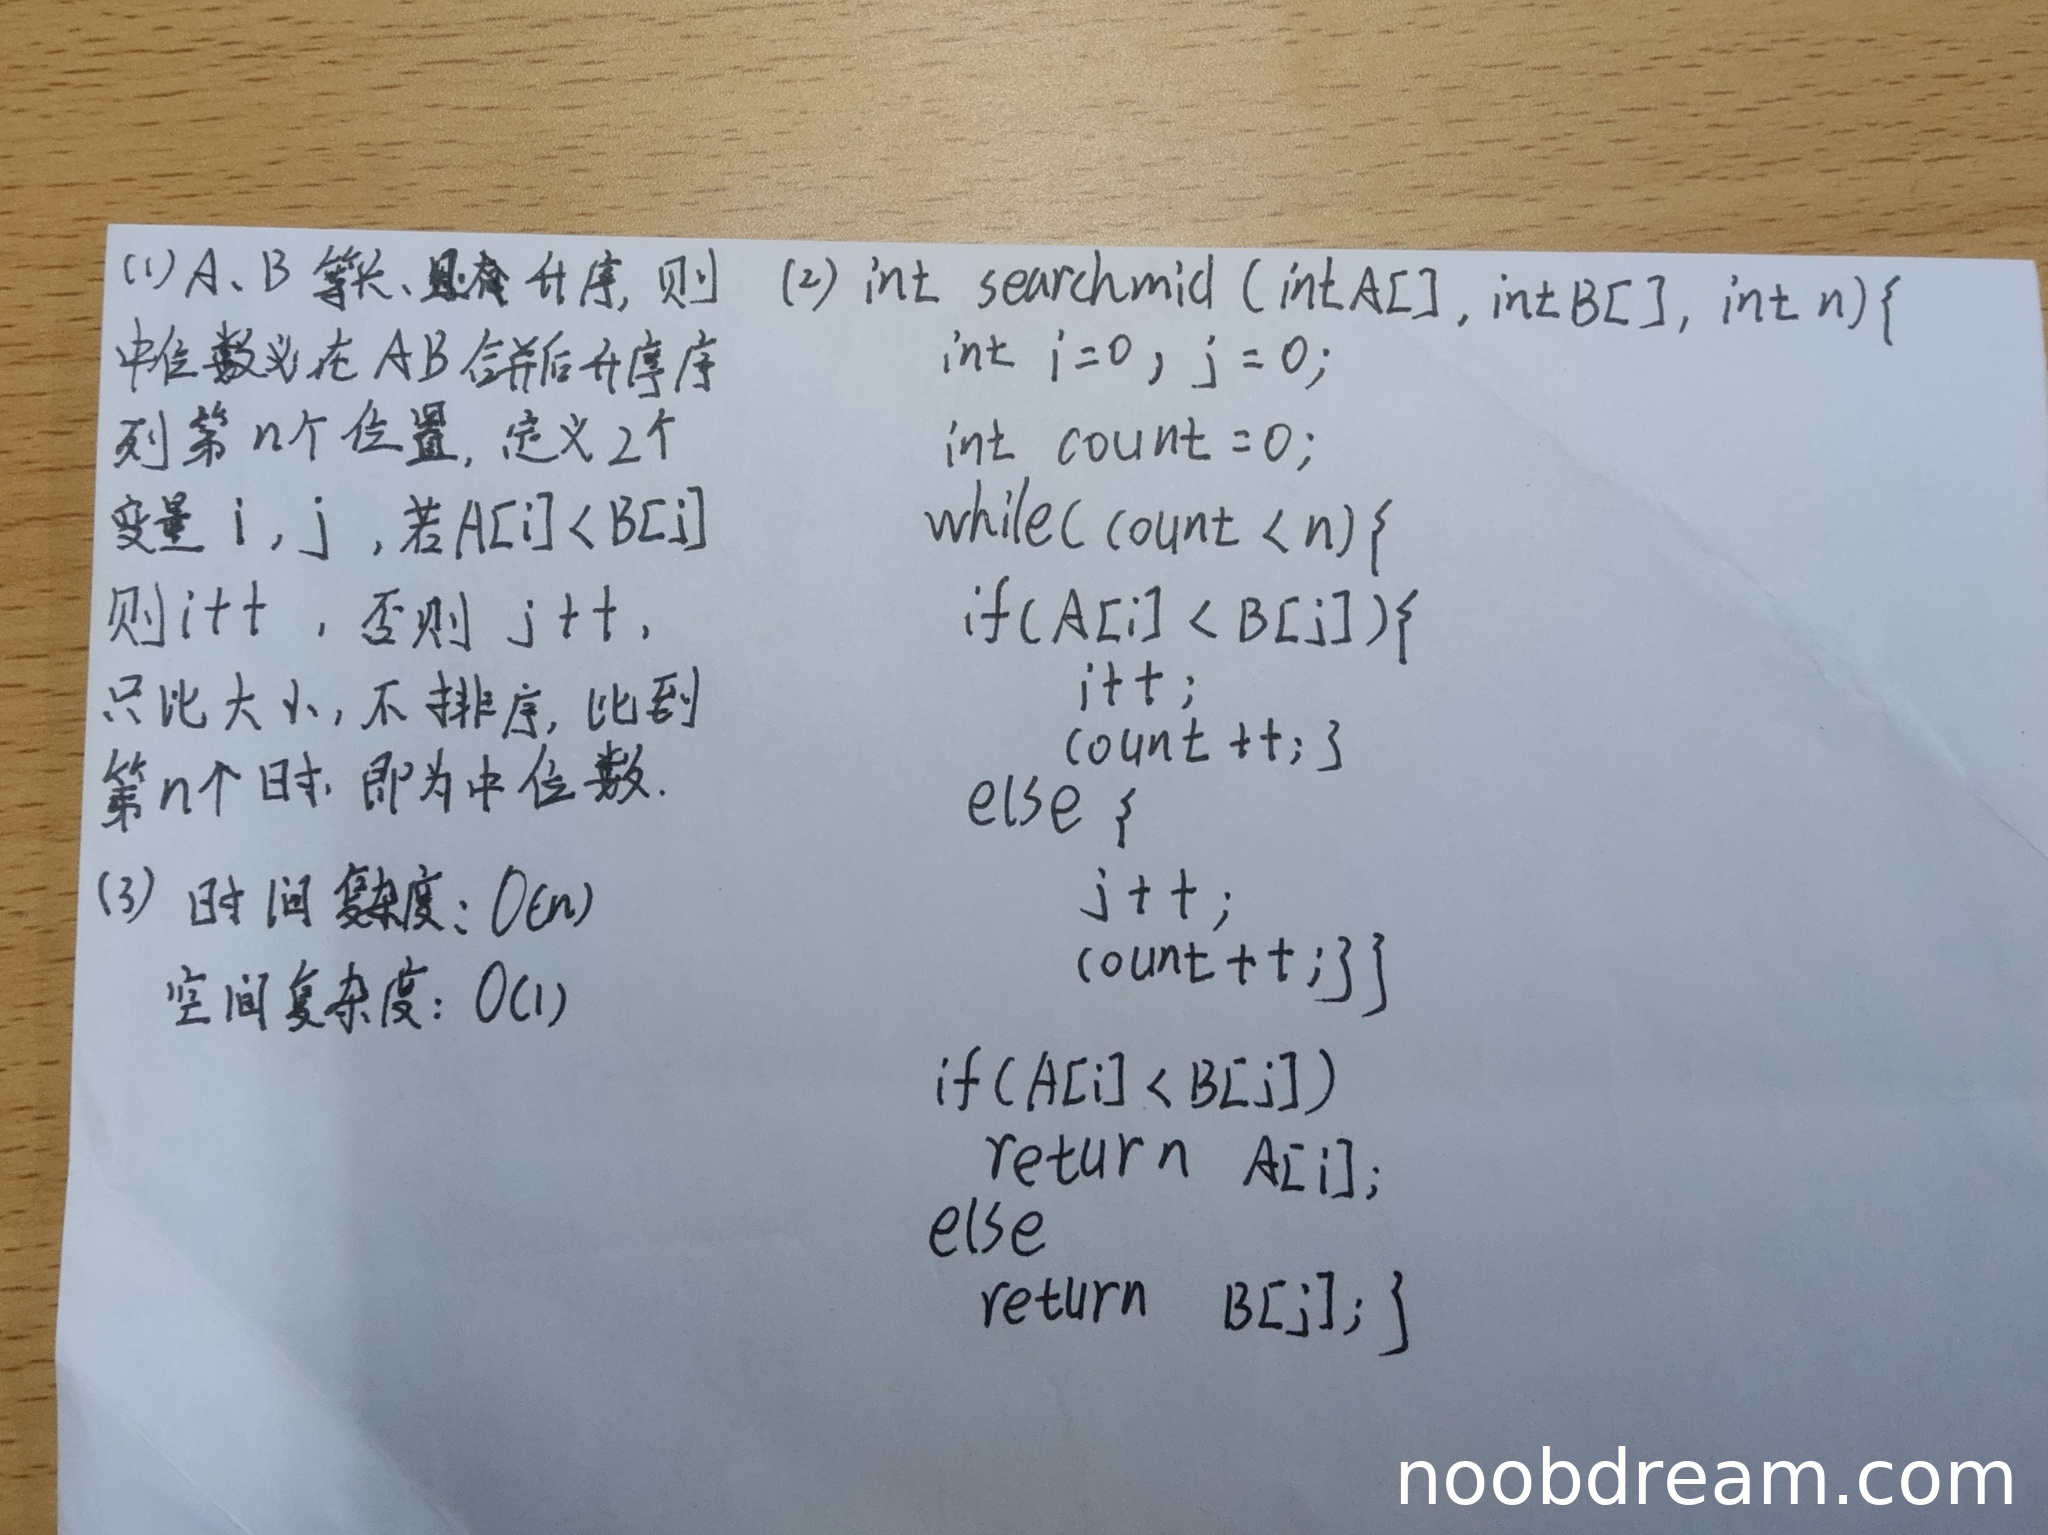 (1) A、B 等长、且有升序, 则
中位数必在 AB 合并后升序序
列第 n个位置, 定义2个
变量 i, j , 若A[i]<B[j]
则i++ , 否则 j++,
只比大小, 不排序, 比到
第n个时, 即为中位数.
(3) 时间复杂度: O(n)
空间复杂度: O(1)
(2) int searchmid (int A[], int B[], int n){
int i=0, j=0;
int count=0;
while(count < n){
if(A[i] < B[j]){
i++;
count++;}
else {
j++;
count++;}}
if(A[i] < B[j])
return A[i];
else
return B[j];}
noobdream.com